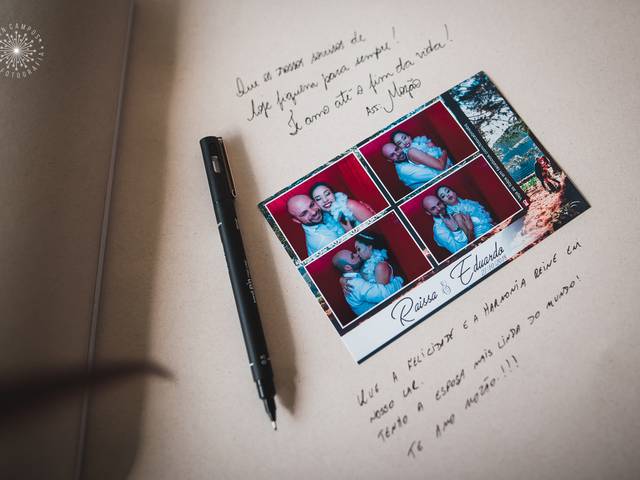 Que os nossos sorrisos de
hoje fiquem para sempre!
Te amo até o fim da vida!
Ass: Mozão
Raissa & Eduardo
QUE A FELICIDADE E A HARMONIA REINE EM
NOSSO LAR.
TENHO A ESPOSA MAIS LINDA DO MUNDO!
TE AMO MOZÃO!!!